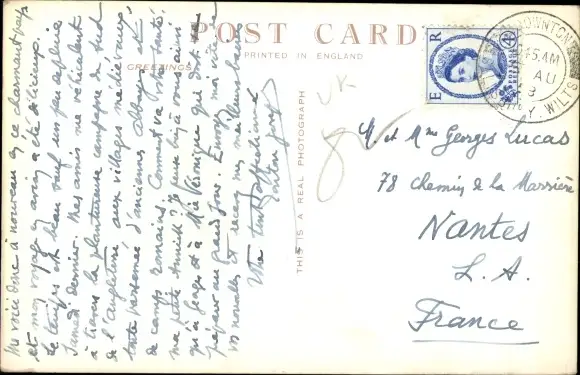 POST CARD
PRINTED IN ENGLAND
GREETINGS
THIS IS A REAL PHOTOGRAPH
UK
E R
DOWNTON
45 AM
AU
SALISBURY. WILTS
M. et Mme Georges Lucas
78 Chemin de la Marrière
Nantes
L. A.
France
Me voici donc à nouveau en ce charmant pays
et mon voyage en avion a été délicieux.
Le temps est beau sauf un peu de pluie
Samedi dernier. Mes amis me véhiculent
à travers la plantureuse campagne du Sud
de l'Angleterre aux villages médiévaux,
toute parsemée d'anciennes abbayes &
de camps romains. Comment va votre santé,
ma petite Annick? Je pense bien à vous ainsi
qu'à Georges et à Mie Véronique qui doit se
préparer au grand jour. Envoyez moi vite de
vos nouvelles et recevez mes meilleurs baisers
Votre tout affectionné